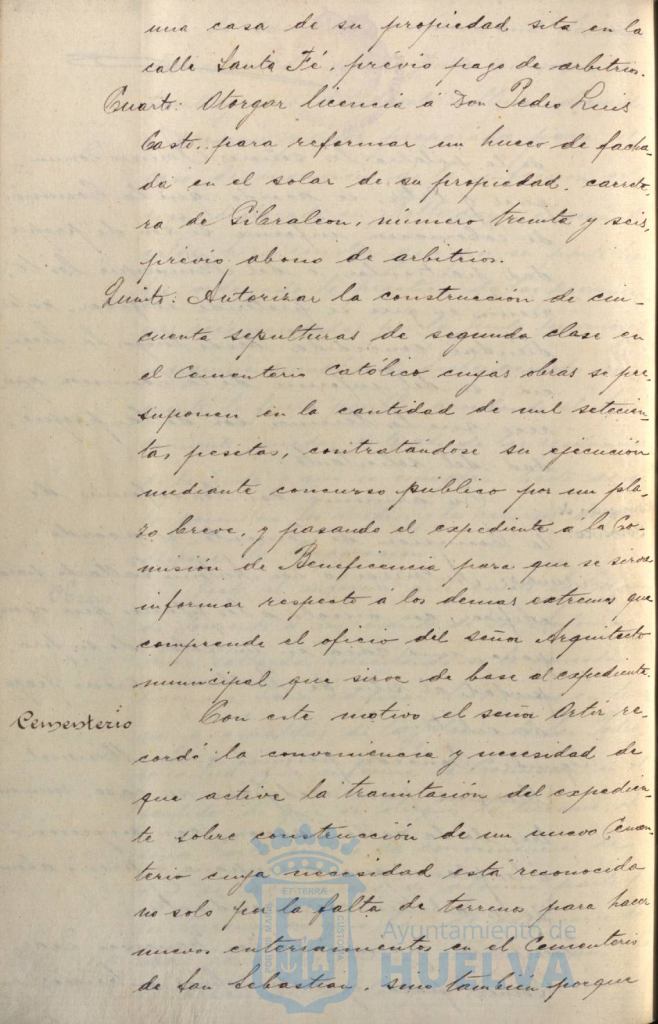 una casa de su propiedad sita en la
calle Santa Fé, previo pago de arbitrios.
Cuarto: Otorgar licencia á Don Pedro Luis
Casto, para reformar un hueco de facha-
da en el solar de su propiedad, carrete-
ra de Gibraleon, número treinta y seis,
previo abono de arbitrios.
Quinto: Autorizar la construcción de cin-
cuenta sepulturas de segunda clase en
el Cementerio Católico cuyas obras se pre-
suponen en la cantidad de mil setecien-
tas pesetas, contratándose su ejecución
mediante concurso público por un pla-
zo breve, y pasando el expediente á la Co-
misión de Beneficencia para que se sirva
informar respecto á los demás extremos que
comprende el oficio del señor Arquitecto
municipal que sirve de base al expediente.
Cementerio
Con este motivo el señor Ortiz re-
cordó la conveniencia y necesidad de
que active la tramitación del expedien-
te sobre construcción de un nuevo Cemen-
terio cuya necesidad está reconocida
no solo por la falta de terreno para hacer
nuevos enterramientos en el Cementerio
de San Sebastian, sino también porque
Ayuntamiento de
HUELVA